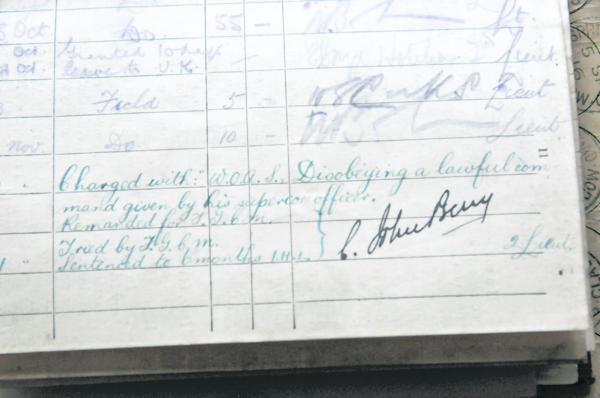 5 Oct. Do. 55 - Lt.
Oct. Granted 10 days
Oct. leave to U.K. Lieut.
Field 5 - Lieut
Nov. Do 10 - Lieut
Charged with: W.O.A.S. Disobeying a lawful com
mand given by his superior officer.
Remanded for F.G.C.M.
Tried by F.G.C.M. C. John Berry
Sentenced to 6 months I.H.L. 2 Lieut.